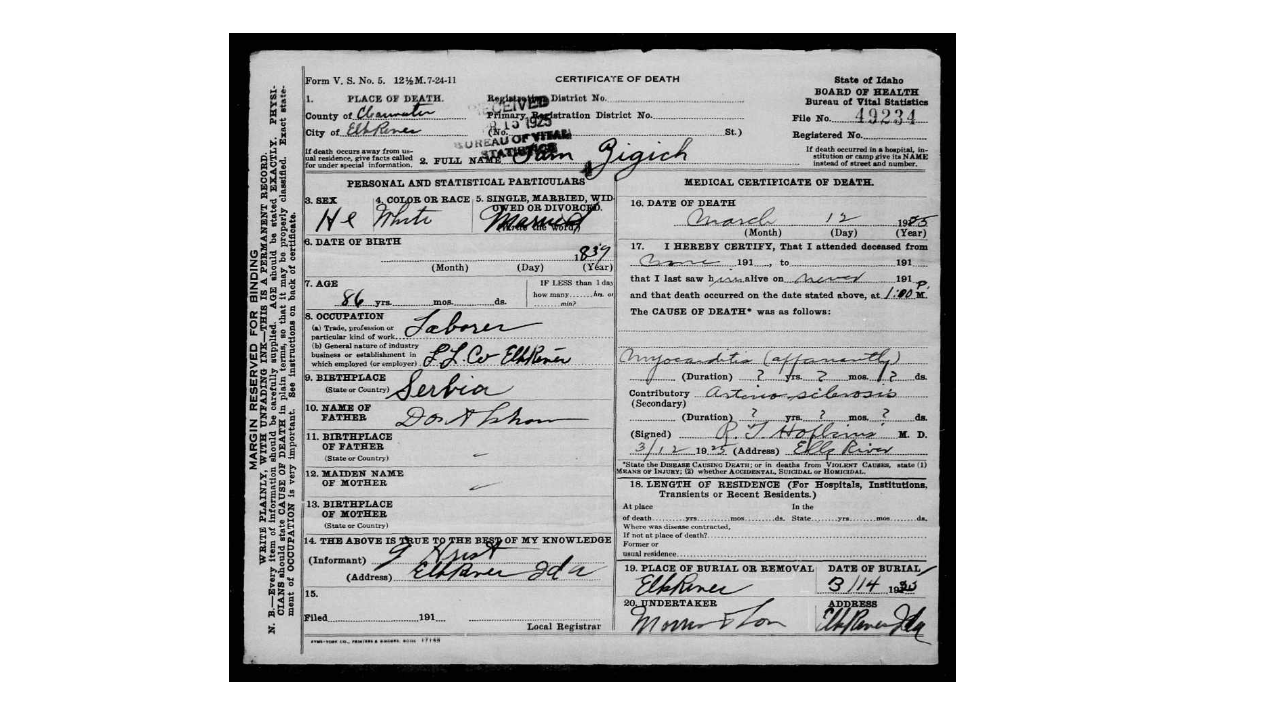 Form V. S. No. 5. 12½M. 7-24-11
CERTIFICATE OF DEATH
State of Idaho
BOARD OF HEALTH
Bureau of Vital Statistics
File No. 49234
Registered No.
1. PLACE OF DEATH.
County of Clearwater
City of Elk River
Registration District No.
Primary Registration District No.
(No. St.)
RECEIVED
15 1925
BUREAU OF VITAL
STATISTICS
If death occurs away from us-
ual residence, give facts called
for under special information.
2. FULL NAME Sam Zigich
If death occurred in a hospital, in-
stitution or camp give its NAME
instead of street and number.
PERSONAL AND STATISTICAL PARTICULARS
3. SEX
4. COLOR OR RACE
White
5. SINGLE, MARRIED, WID-
OWED OR DIVORCED.
Married
(Write the word)
6. DATE OF BIRTH
1839
(Month) (Day) (Year)
7. AGE
86 yrs. mos. ds.
IF LESS than 1 day
how many hrs. or
min?
8. OCCUPATION
(a) Trade, profession or
particular kind of work. Laborer
(b) General nature of industry
business or establishment in
which employed (or employer) Elk River
9. BIRTHPLACE
(State or Country) Serbia
10. NAME OF
FATHER Don't Know
11. BIRTHPLACE
OF FATHER
(State or Country)
12. MAIDEN NAME
OF MOTHER
13. BIRTHPLACE
OF MOTHER
(State or Country)
14. THE ABOVE IS TRUE TO THE BEST OF MY KNOWLEDGE
(Informant)
(Address) Elk River Ida
15.
Filed 191
Local Registrar
MEDICAL CERTIFICATE OF DEATH.
16. DATE OF DEATH
March 12 1925
(Month) (Day) (Year)
17. I HEREBY CERTIFY, That I attended deceased from
191 , to 191
that I last saw him alive on never 191
and that death occurred on the date stated above, at 1:00 P. M.
The CAUSE OF DEATH* was as follows:
Myocardtis (apparantly)
(Duration) ? yrs. ? mos. ? ds.
Contributory Arterio sclerosis
(Secondary)
(Duration) ? yrs. ? mos. ? ds.
(Signed) Hopkins M. D.
3/12 1925 (Address) Elk River
*State the DISEASE CAUSING DEATH; or in deaths from VIOLENT CAUSES, state (1)
MEANS OF INJURY; (2) whether ACCIDENTAL, SUICIDAL or HOMICIDAL.
18. LENGTH OF RESIDENCE (For Hospitals, Institutions,
Transients or Recent Residents.)
At place In the
of death yrs. mos. ds. State yrs. mos. ds.
Where was disease contracted,
If not at place of death?
Former or
usual residence
19. PLACE OF BURIAL OR REMOVAL
Elk River
DATE OF BURIAL
3/14 1925
20. UNDERTAKER
Morris & Son
ADDRESS
Elk River Ida
MARGIN RESERVED FOR BINDING
WRITE PLAINLY, WITH UNFADING INK—THIS IS A PERMANENT RECORD.
N. B.—Every item of information should be carefully supplied. AGE should be stated EXACTLY. PHYSI-
CIANS should state CAUSE OF DEATH in plain terms, so that it may be properly classified. Exact state-
ment of OCCUPATION is very important. See instructions on back of certificate.